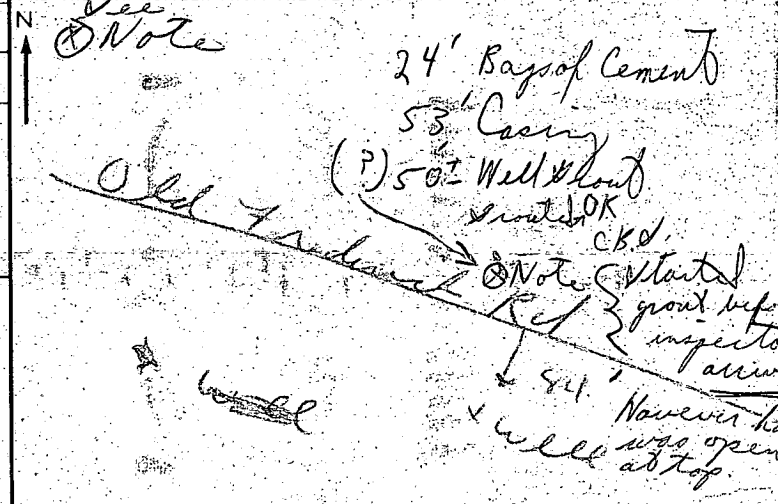 See
N
ⓧ Note
24' Bags of Cement
53' Casing
(?) 50'± Well Grout
Grouted OK
Old Frederick Rd
ⓧ Note { Started
grout bef
inspecto
arriv
84'
x Well
However h
was open
at top.
Well